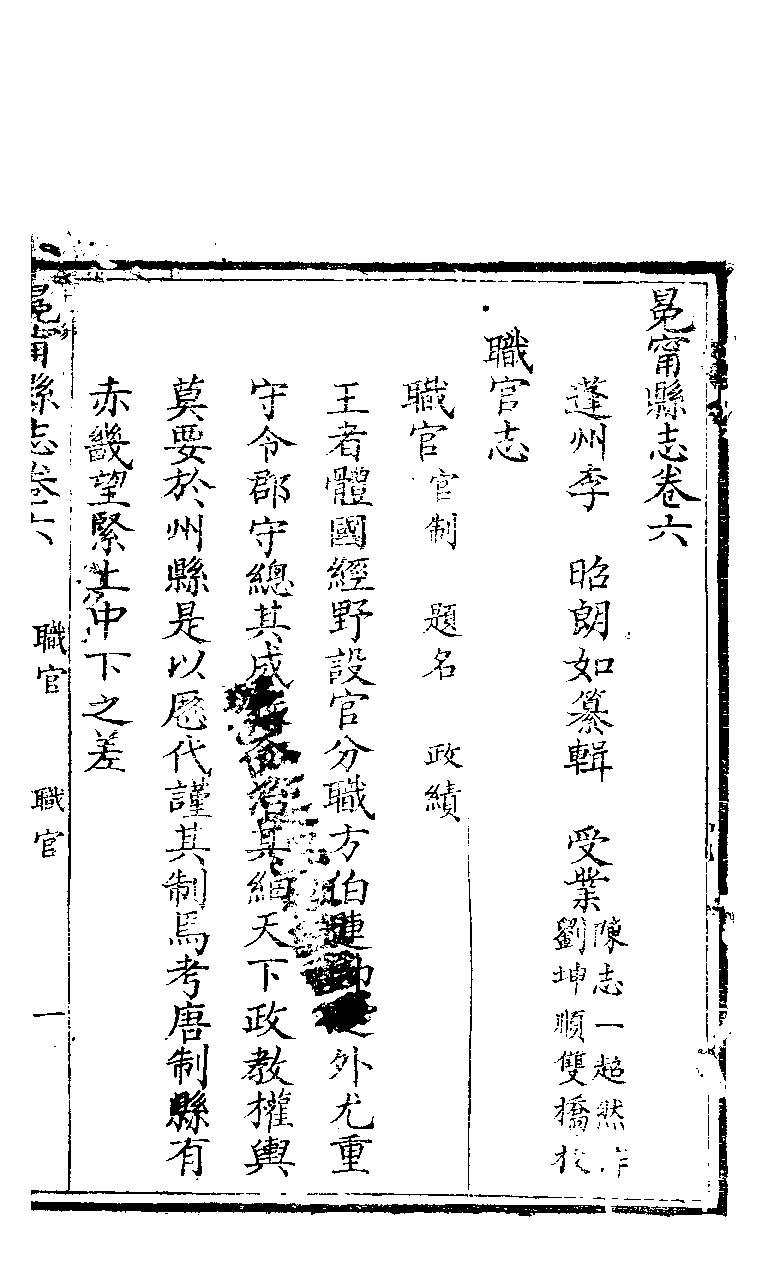 冕甯縣志卷六
蓬州李　昭朗如纂輯　受業
陳志一超然
劉坤順雙橋校
職官志
職官　官制　題名　政績
王者體國經野設官分職方伯連帥之外尤重
守令郡守總其成令治其細天下政教權輿
莫要於州縣是以歷代謹其制焉考唐制縣有
赤畿望緊上中下之差
冕甯縣志卷六　職官　職官　一